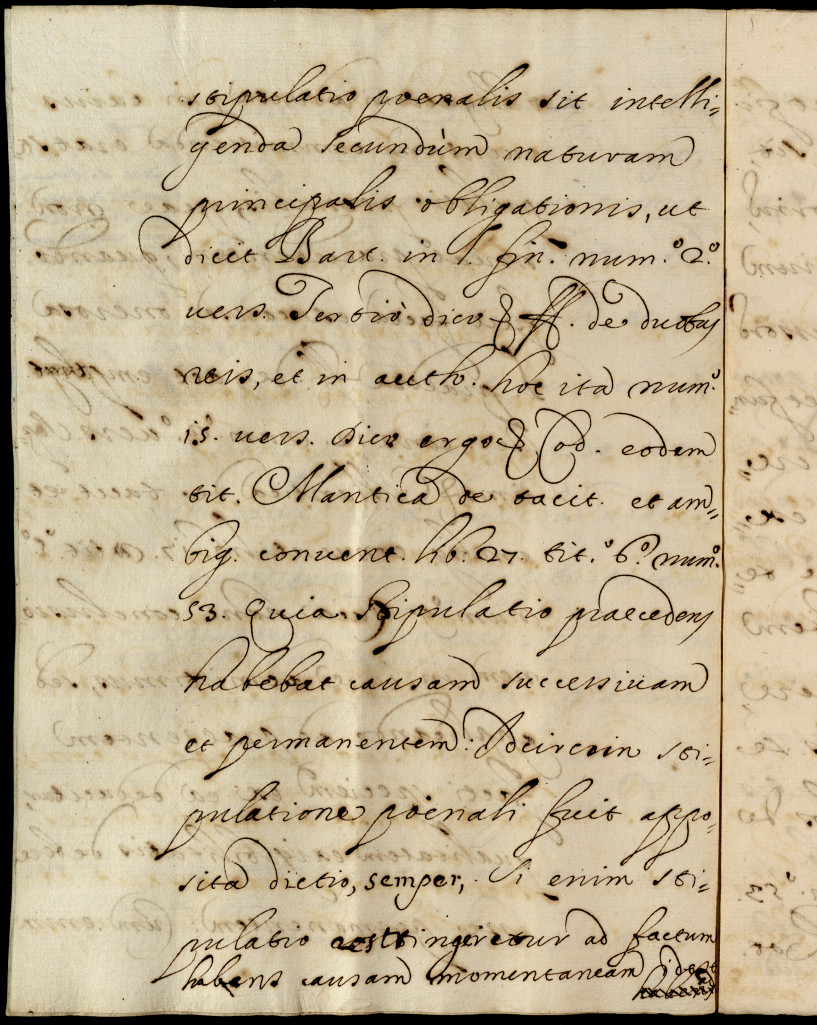 stipulatio poenalis sit intelli=
genda secundùm naturam
principalis obligationis, ut
dicit Bart. in l. fin. num.º 2.º
vers. Tertiò dico ff. de duobus
reis, et in auth. hoc ita num.º
15. vers. dico ergo Cod. eodem
tit. Mantica de tacit. et am=
big. convent. lib. 27. tit.º 6.º num.º
53. Quia stipulatio praecedens
habebat causam successivam
et permanentem: Ideircò in sti=
pulatione poenali fuit appo=
sita dictio, semper, Si enim sti=
pulatio restringeretur ad factum
habens causam momentaneam idest